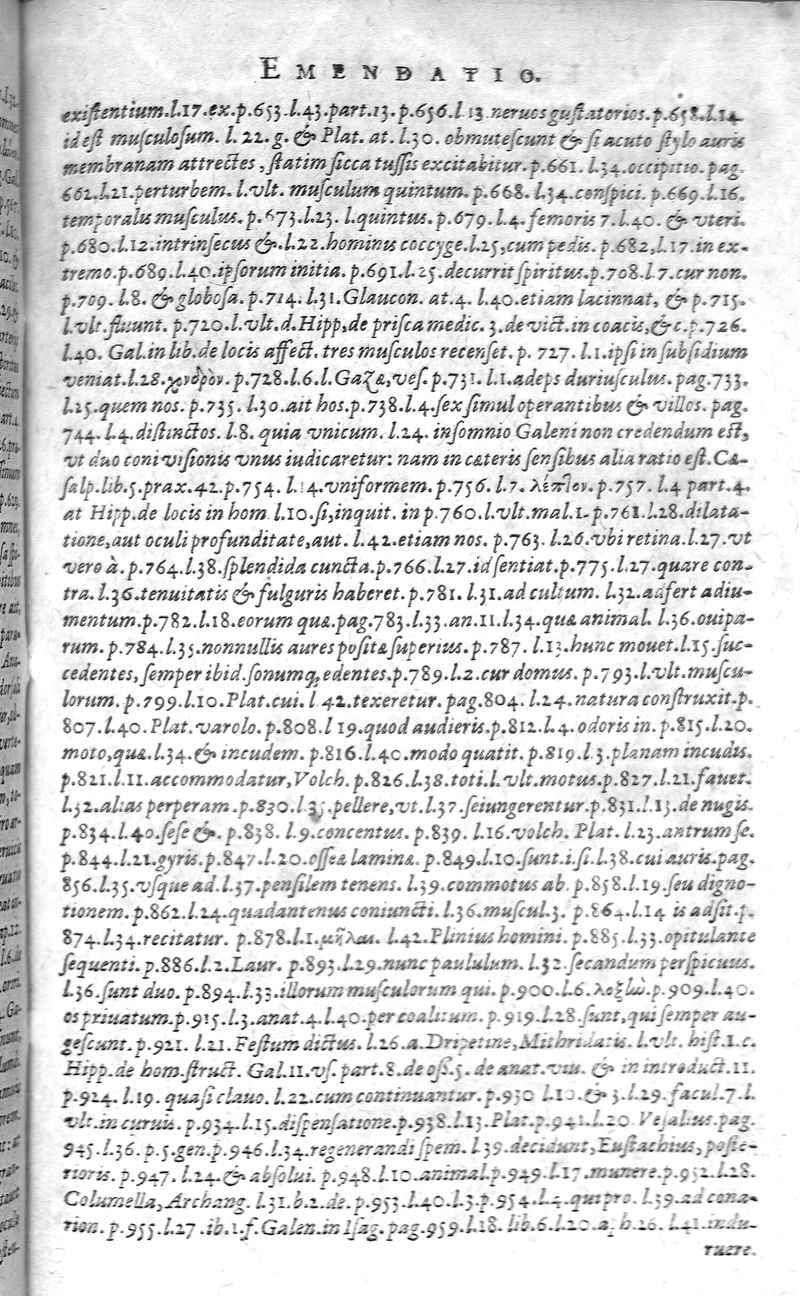 EMENDATIO.
existentium.l.17.ex.p.653.l.43.part.13.p.656.l 13.neruos gustatorios.p.658.l.14
id est musculosum. l. 22. g. & Plat. at. l.30. obmutescunt & si acuto stylo auris
membranam attrectes, statim sicca tussis excitabitur. p.661. l.34.occipitio. pag.
662.l.21.perturbem. l.vlt. musculum quintum. p.668. l.34.conspici. p.669.l.16.
temporalis musculus. p.673.l.23. l.quintus. p.679. l.4. femoris 7. l.40. & vteri.
p.680.l.12.intrinsecus &.l.22.hominis coccyge.l.25,cum pedis. p.682,l.17.in ex-
tremo.p.689.l.40.ipsorum initia. p.691.l.25.decurrit spiritus.p.708.l.7.cur non.
p.709. l.8. & globosa. p.714. l.31.Glaucon. at.4. l.40.etiam lacinnat, & p.715.
l.vlt.fluunt. p.720.l.vlt.d.Hipp,de prisca medic. 3. de vict.in coacis,& c.p.726.
l.40. Gal.in lib.de locis affect. tres musculos recenset. p. 727. l.1.ipsi in subsidium
veniat.l.28.χονδρὸν. p.728.l.6.l.Gazæ,ves. p.731. l.1.adeps duriusculus. pag.733.
l.25.quem nos. p.735. l.30.ait hos.p.738.l.4.sex simul operantibus & villos. pag.
744. l.4. distinctos. l.8. quia vnicum. l.24. insomnio Galeni non credendum est,
vt duo coni visionis vnus iudicaretur: nam in cæteris sensibus alia ratio est. Cæ-
salp.lib.5.prax.42.p.754. l.14.vniformem. p.756. l.7. λέπτον. p.757. l.4 part.4.
at Hipp.de locis in hom l.10.si,inquit. in p.760.l.vlt.mal.1. p.761.l.28.dilata-
tione,aut oculi profunditate,aut. l.42.etiam nos. p.763. l.26.vbi retina.l.27.vt
vero à. p.764.l.38.splendida cuncta.p.766.l.27.id sentiat.p.775.l.27.quare con-
tra.l.36.tenuitatis & fulguris haberet. p.781. l.31.ad cultum. l.32.adfert adiu-
mentum.p.782.l.18.eorum quæ.pag.783.l.33.an.11.l.34.quæ animal. l.36.ouipa-
rum. p.784.l.35.nonnullis aures posita superius. p.787. l.13.hunc mouet.l.15.suc-
cedentes, semper ibid.sonumq,edentes.p.789.l.2.cur domus. p.793.l.vlt.muscu-
lorum. p.799.l.10.Plat.cui. l 42.texeretur. pag.804. l.24.natura construxit.p.
807.l.40. Plat.varolo. p.808.l 19.quod audieris.p.812.l.4.odoris in. p.815.l.20.
moto,quæ.l.34.& incudem. p.816.l.40.modo quatit. p.819.l.3.planam incudis.
p.821.l.11.accommodatur,Volch. p.826.l.38.toti.l.vlt.motus.p.827.l.21.fauet.
l.32.alias perperam.p.830.l.35.pellere,vt.l.37.seiungerentur.p.831.l.13.de nugis.
p.834.l.40.sese &. p.838. l.9.concentus. p.839. l.16.volch. Plat. l.23.antrum se.
p.844.l.21.gyris. p.847.l.20.osseæ laminæ. p.849.l.10.sunt.i.si.l.38.cui auris.pag.
856.l.35.vsque ad.l.37.pensilem tenens. l.39.commotus ab. p.858.l.19.seu digno-
tionem. p.862.l.24.quadantenus coniuncti. l.36.muscul.3. p.864.l.14 is adsit.p.
874.l.34.recitatur. p.878.l.1.μῆλαι. l.42.Plinius homini. p.885.l.33.opitulante
sequenti. p.886.l.2.Laur. p.893.l.29.nunc paululum. l.32.secandum perspicuus.
l.36.sunt duo. p.894.l.33.illorum musculorum qui. p.900.l.6. λοξῶ.p.909.l.40.
os priuatum.p.915.l.3.anat.4.l.40.per coalitum. p.919.l.28.sunt,qui semper au-
gescunt. p.921. l.21.Festum dictus. l.26.a Dripetine,Mithridatis. l.vlt. hist.1.c.
Hipp.de hom.struct. Gal.11.vs. part.8.de oss.5. de anat.viu. & in introduct.11.
p.924.l.19. quasi clauo. l.22.cum continuantur. p.930 l.10.& 3.l.29.facul.7.l.
vlt.in curuis. p.934.l.15.dispensatione.p.938.l.13.Plat.p.941.l.20 Vesalius.pag.
945.l.36. p.5.gen.p.946.l.34.regenerandi spem. l.39.decidunt,Eustachius, poste-
rioris. p.947. l.24.& absolui. p.948.l.10.animal.p.949.l.17.munere.p.952.l.28.
Columella, Archang. l.31.b.2.de. p.953.l.40.l.3.p.954.l.4.qui pro. l.39.ad cona-
rion. p.955.l.27 .ib.1.f.Galen.in Isag.pag.959.l.18. lib.6.l.20.aph.26. l.41.indu-
ruere.